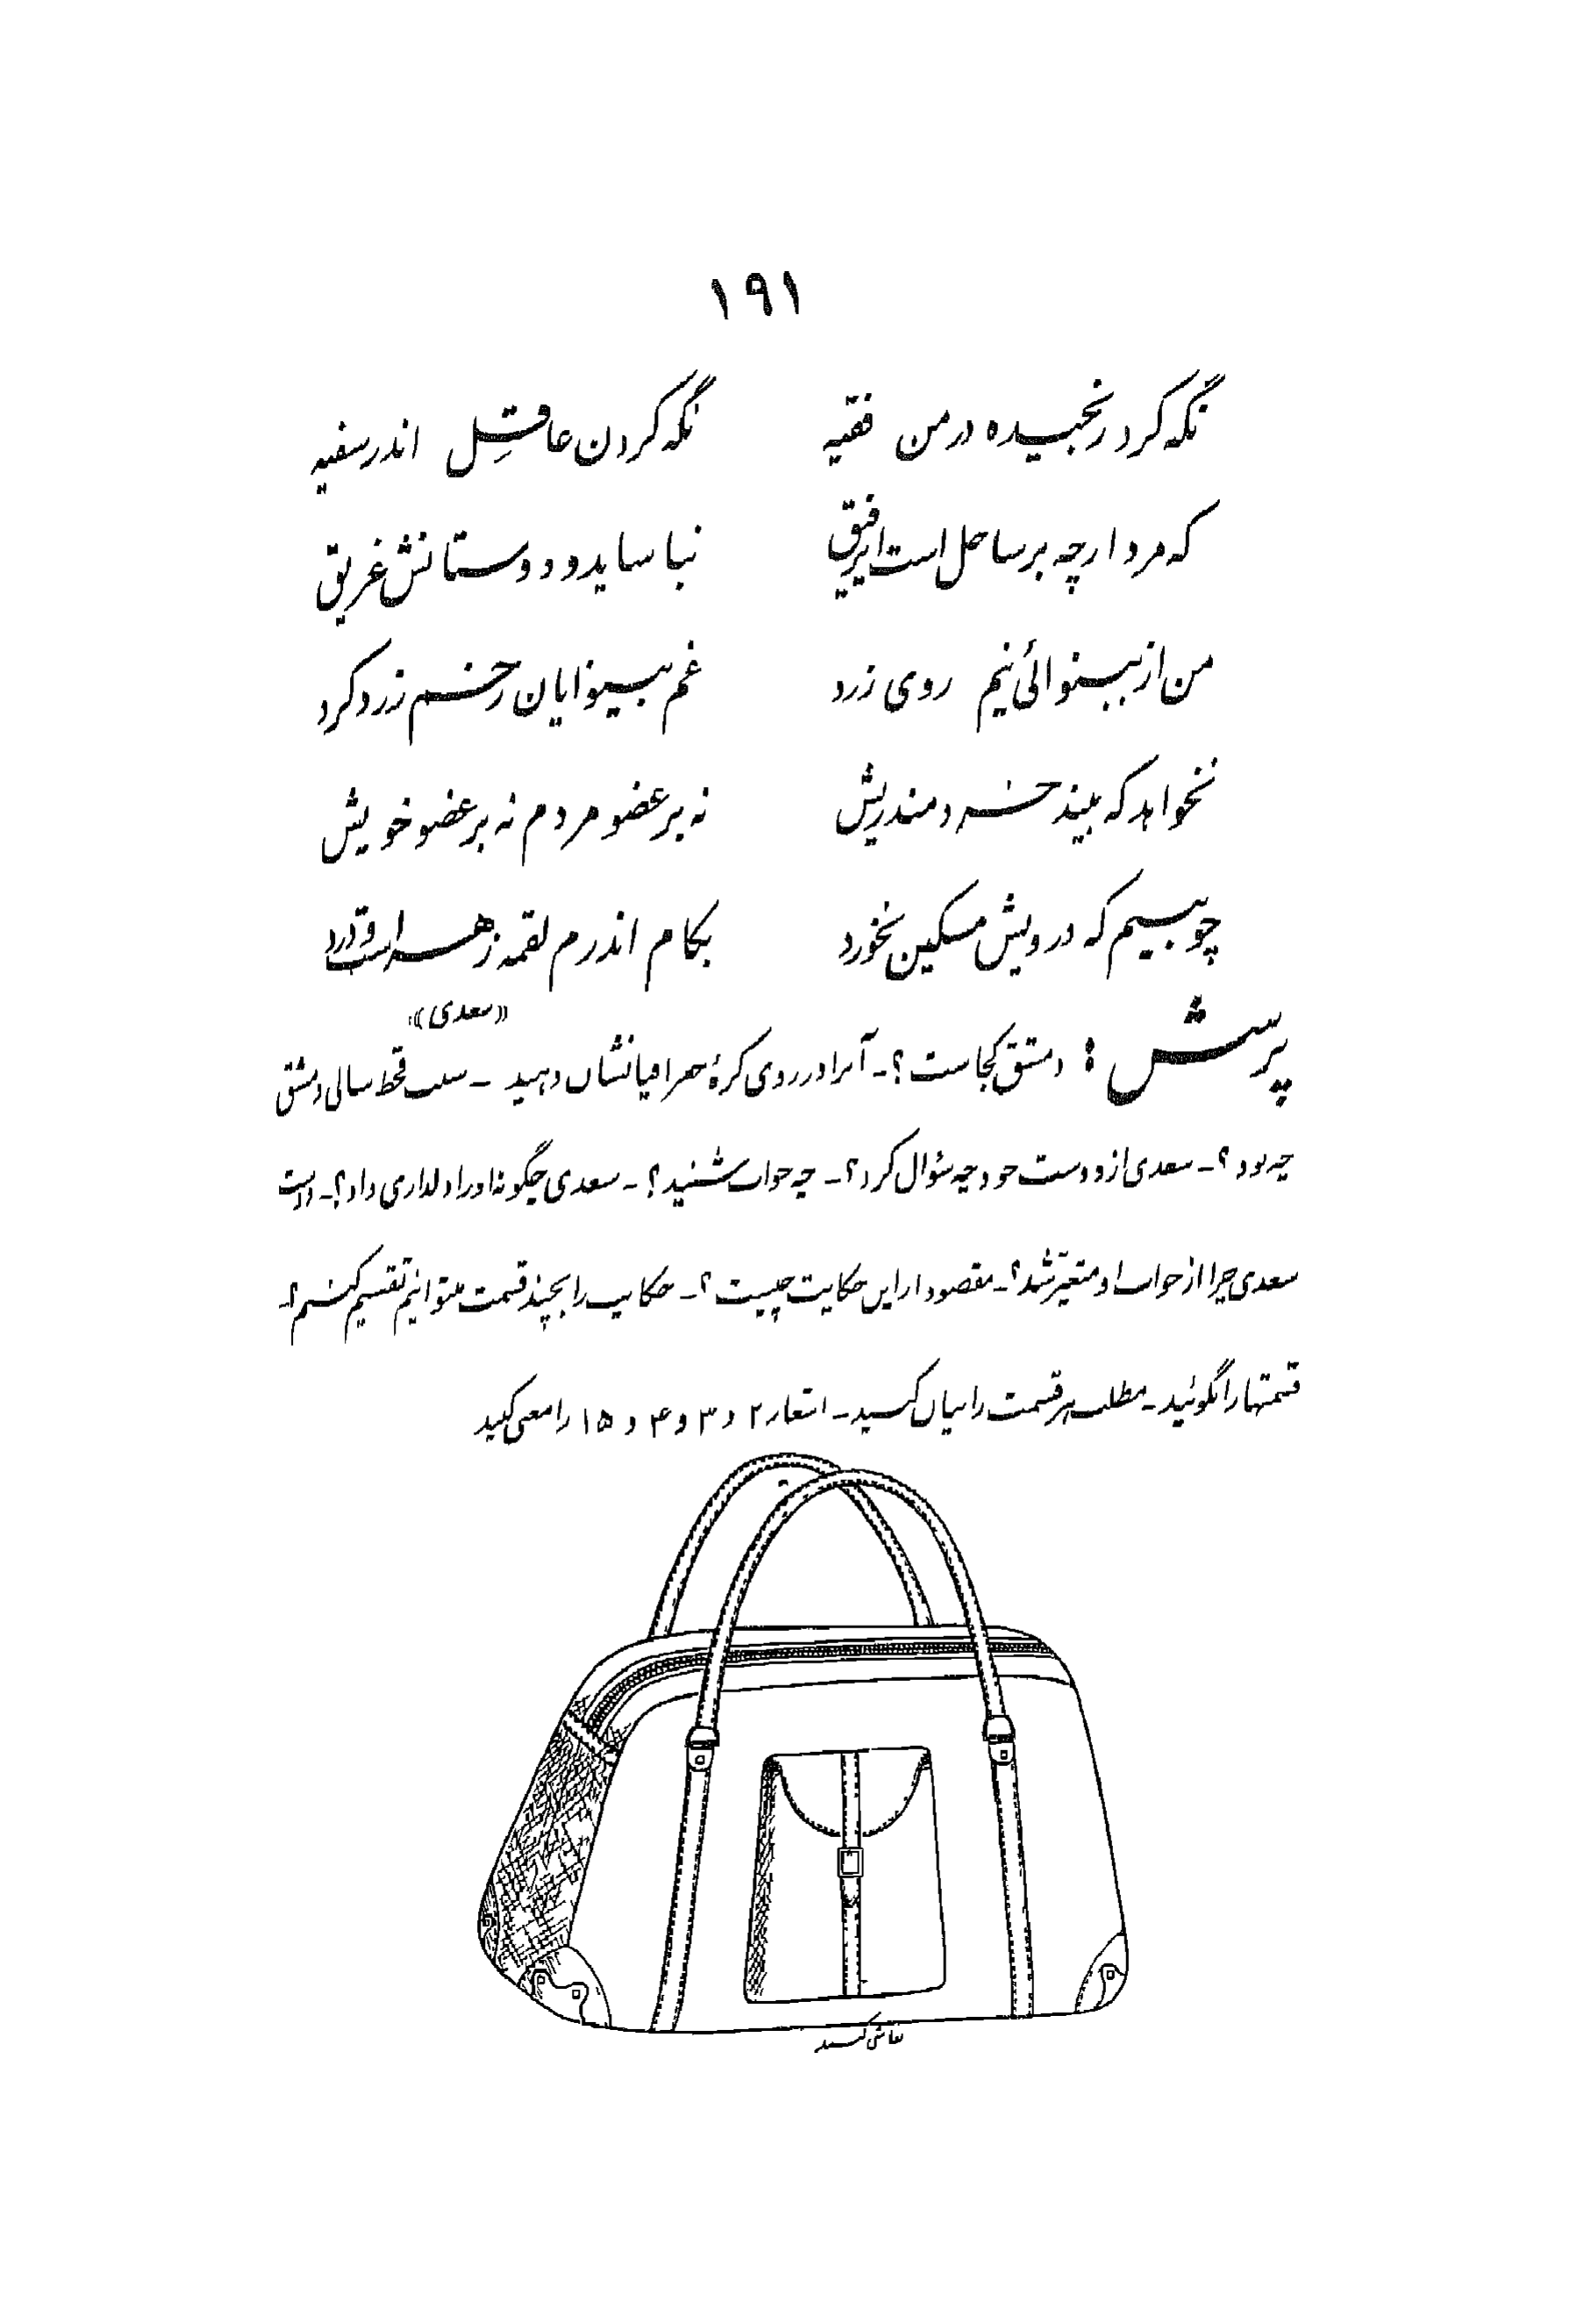 ۱۹۱
نگه کرد رنجیده در من فقیه نگه کردن عاقِل اندر سفیه
که مرد ارچه بر ساحل است ایرفیق نیاساید و دوستانش غریق
من از بینوائی نیم روی زرد غم بینوایان رخم زرد کرد
نخواهد که بیند خردمند ریش نه بر عضو مردم نه بر عضو خویش
چو بینم که درویش مسکین نخورد بکام اندرم لقمه زهر است و درد
«سعدی»
پرسش : دمشق کجاست؟ ـ آنرا در روی کرهٔ جغرافیا نشان دهید ـ سبب قحط سالی دمشق
چه بود؟ ـ سعدی از دوست خود چه سؤال کرد؟ ـ چه جواب شنید؟ ـ سعدی چگونه او را دلداری داد؟ ـ دوست
سعدی چرا از جواب او متغیّر شد؟ ـ مقصود از این حکایت چیست؟ ـ حکایت را بچند قسمت میتوانیم تقسیم کنیم؟ ـ
قسمتها را بگوئید ـ مطلب هر قسمت را بیان کنید ـ اشعار ۲ و ۳ و ۴ و ۱۵ را معنی کنید
نقاشی کنید